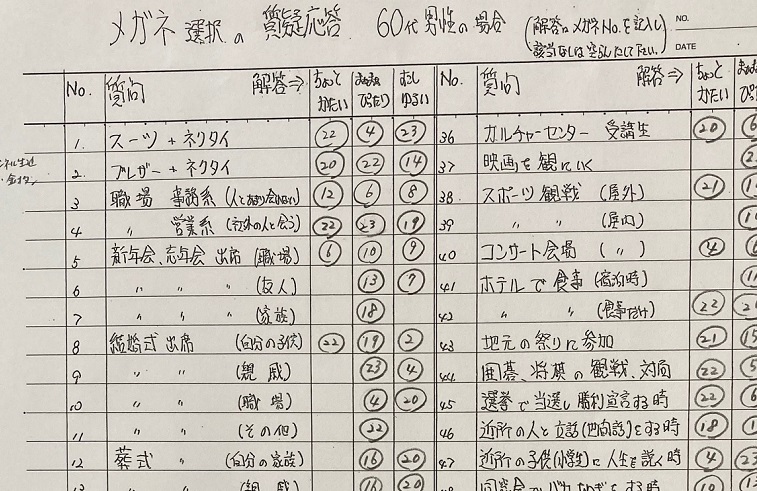 メガネ 選択 の 質疑応答 60代 男性 の 場合 (解答は メガネNo.を記入し
該当なしは空らんにして下さい。)
NO.
DATE
No. 質問 解答⇒ ちょっとかたい まぁまぁぴったり 少しゆるい
1. スーツ + ネクタイ 22 4 23
2. ブレザー + ネクタイ 20 22 14
3 職場 事務系 12 6 8
4 〃 営業系 (社外の人と会う) 22 23 19
5 新年会、忘年会 出席 (職場) 6 10 9
6 〃 〃 〃 (友人) 13 7
7 〃 〃 〃 (家族) 18
8 結婚式 出席 (自分の子供) 22 19 2
9 〃 〃 (親戚) 23 4
10 〃 〃 (職場) 4 20
11 〃 〃 (その他) 22
12 葬式 〃 (自分の家族) 16 20
13 〃 〃 (親戚) 16 20
No. 質問 解答⇒ ちょっとかたい
36 カルチャーセンター 受講生 20
37 映画を観にいく
38 スポーツ観戦 (屋外) 21
39 〃 〃 (屋内)
40 コンサート会場 (〃) 4
41 ホテルで食事 (宿泊時)
42 〃 〃 (食事だけ) 22
43 地元の祭りに参加 21
44 囲碁、将棋の観戦、対局 22
45 選挙で当選し勝利宣言する時 22
46 近所の人と立話(世間話)をする時 18
47 近所の子供(小学生)に人生を説く時 4